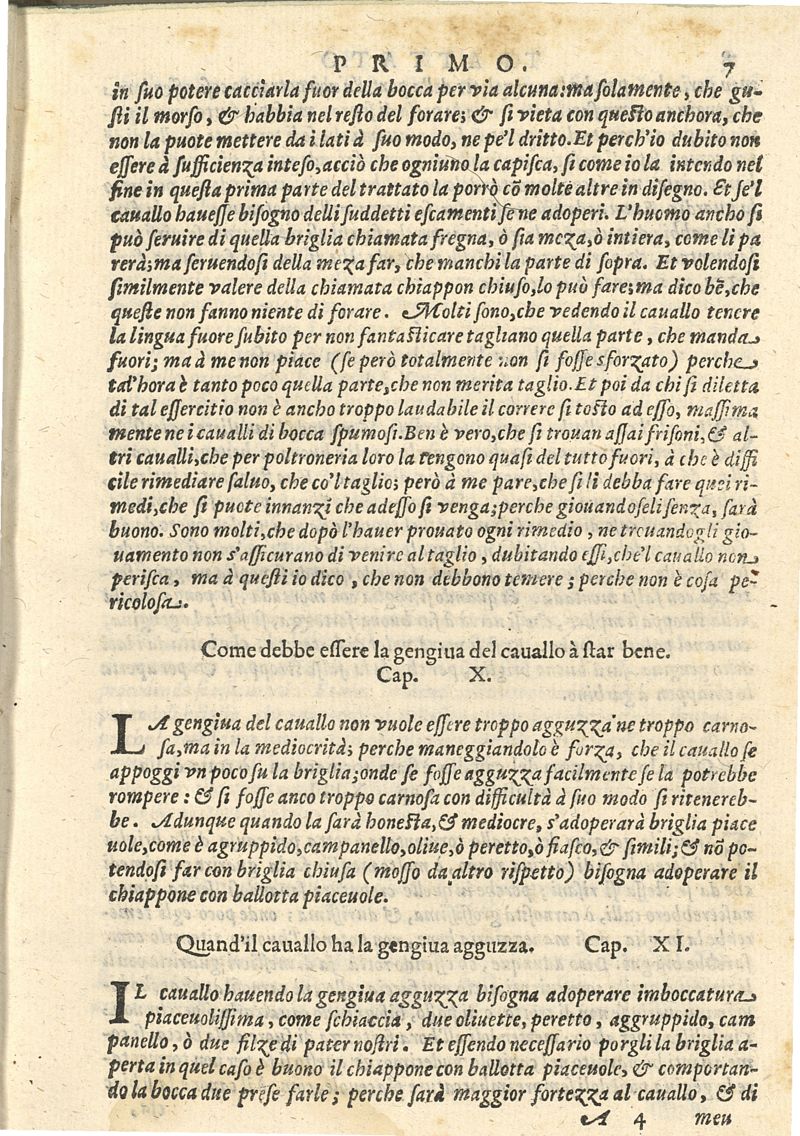 PRIMO. 7
in suo potere cacciarla fuor della bocca per via alcuna: ma solamente, che gu-
sti il morso, & habbia nel resto del forare; & si vieta con questo anchora, che
non la puote mettere da i lati à suo modo, ne pe'l dritto. Et perch'io dubito non
essere à sufficienza inteso, acciò che ogniuno la capisca, si come io la intendo nel
fine in questa prima parte del trattato la porrò cõ molte altre in disegno. Et se'l
cauallo hauesse bisogno delli suddetti escamenti se ne adoperi. L'huomo ancho si
può seruire di quella briglia chiamata fregna, ò sia meza, ò intiera, come li pa
rerà; ma seruendosi della meza far, che manchi la parte di sopra. Et volendosi
similmente valere della chiamata chiappon chiuso, lo può fare; ma dico bẽ, che
queste non fanno niente di forare. Molti sono, che vedendo il cauallo tenere
la lingua fuore subito per non fantasticare tagliano quella parte, che manda
fuori; ma à me non piace (se però totalmente non si fosse sforzato) perche
tal'hora è tanto poco quella parte, che non merita taglio. Et poi da chi si diletta
di tal essercitio non è ancho troppo laudabile il correre si tosto ad esso, massima
mente ne i caualli di bocca spumosi. Ben è vero, che si trouan assai frisoni, & al-
tri caualli, che per poltroneria loro la tengono quasi del tutto fuori, à che è diffi
cile rimediare saluo, che co'l taglio; però à me pare, che si li debba fare quei ri-
medi, che si puote innanzi che adesso si venga; perche giouandoseli senza, sarà
buono. Sono molti, che dopò l'hauer prouato ogni rimedio, ne trouandogli gio-
uamento non s'assicurano di venire al taglio, dubitando essi, che'l cauallo non
perisca, ma à questi io dico, che non debbono temere; perche non è cosa pe-
ricolosa.
Come debbe essere la gengiua del cauallo à star bene.
Cap. X.
LA gengiua del cauallo non vuole essere troppo agguzza ne troppo carno-
sa, ma in la mediocrità; perche maneggiandolo è forza, che il cauallo se
appoggi vn poco su la briglia; onde se fosse agguzza facilmente se la potrebbe
rompere: & si fosse anco troppo carnosa con difficultà à suo modo si ritenereb-
be. Adunque quando la sarà honesta, & mediocre, s'adoperarà briglia piace
uole, come è agruppido, campanello, oliue, ò peretto, ò fiasco, & simili; & nõ po-
tendosi far con briglia chiusa (mosso da altro rispetto) bisogna adoperare il
chiappone con ballotta piaceuole.
Quand'il cauallo ha la gengiua agguzza. Cap. XI.
IL cauallo hauendo la gengiua agguzza bisogna adoperare imboccatura
piaceuolissima, come schiaccia, due oliuette, peretto, aggruppido, cam
panello, ò due filze di pater nostri. Et essendo necessario porgli la briglia a-
perta in quel caso è buono il chiappone con ballotta piaceuole, & comportan-
do la bocca due prese farle; perche sarà maggior fortezza al cauallo, & di
A 4 meu